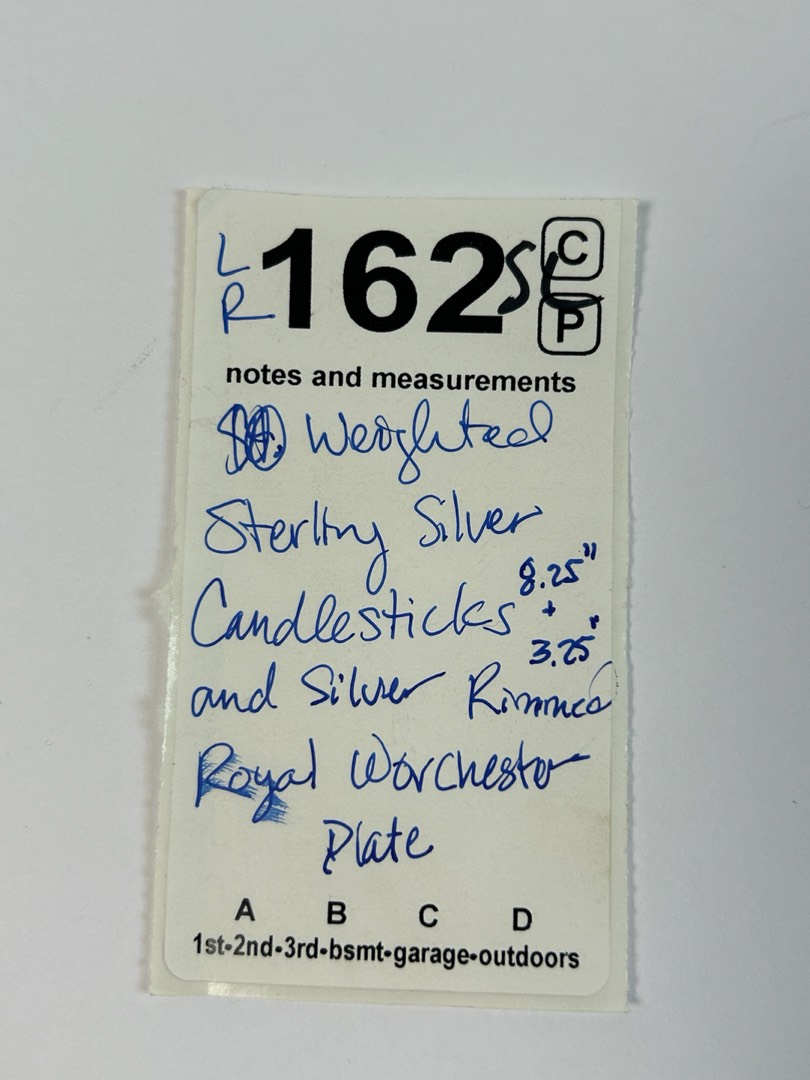 L
R
162
SL
C
P
notes and measurements
Weighted
Sterling Silver
Candlesticks 8.25"
+
3.25"
and Silver Rimmed
Royal Worchester
Plate
A B C D
1st-2nd-3rd-bsmt-garage-outdoors